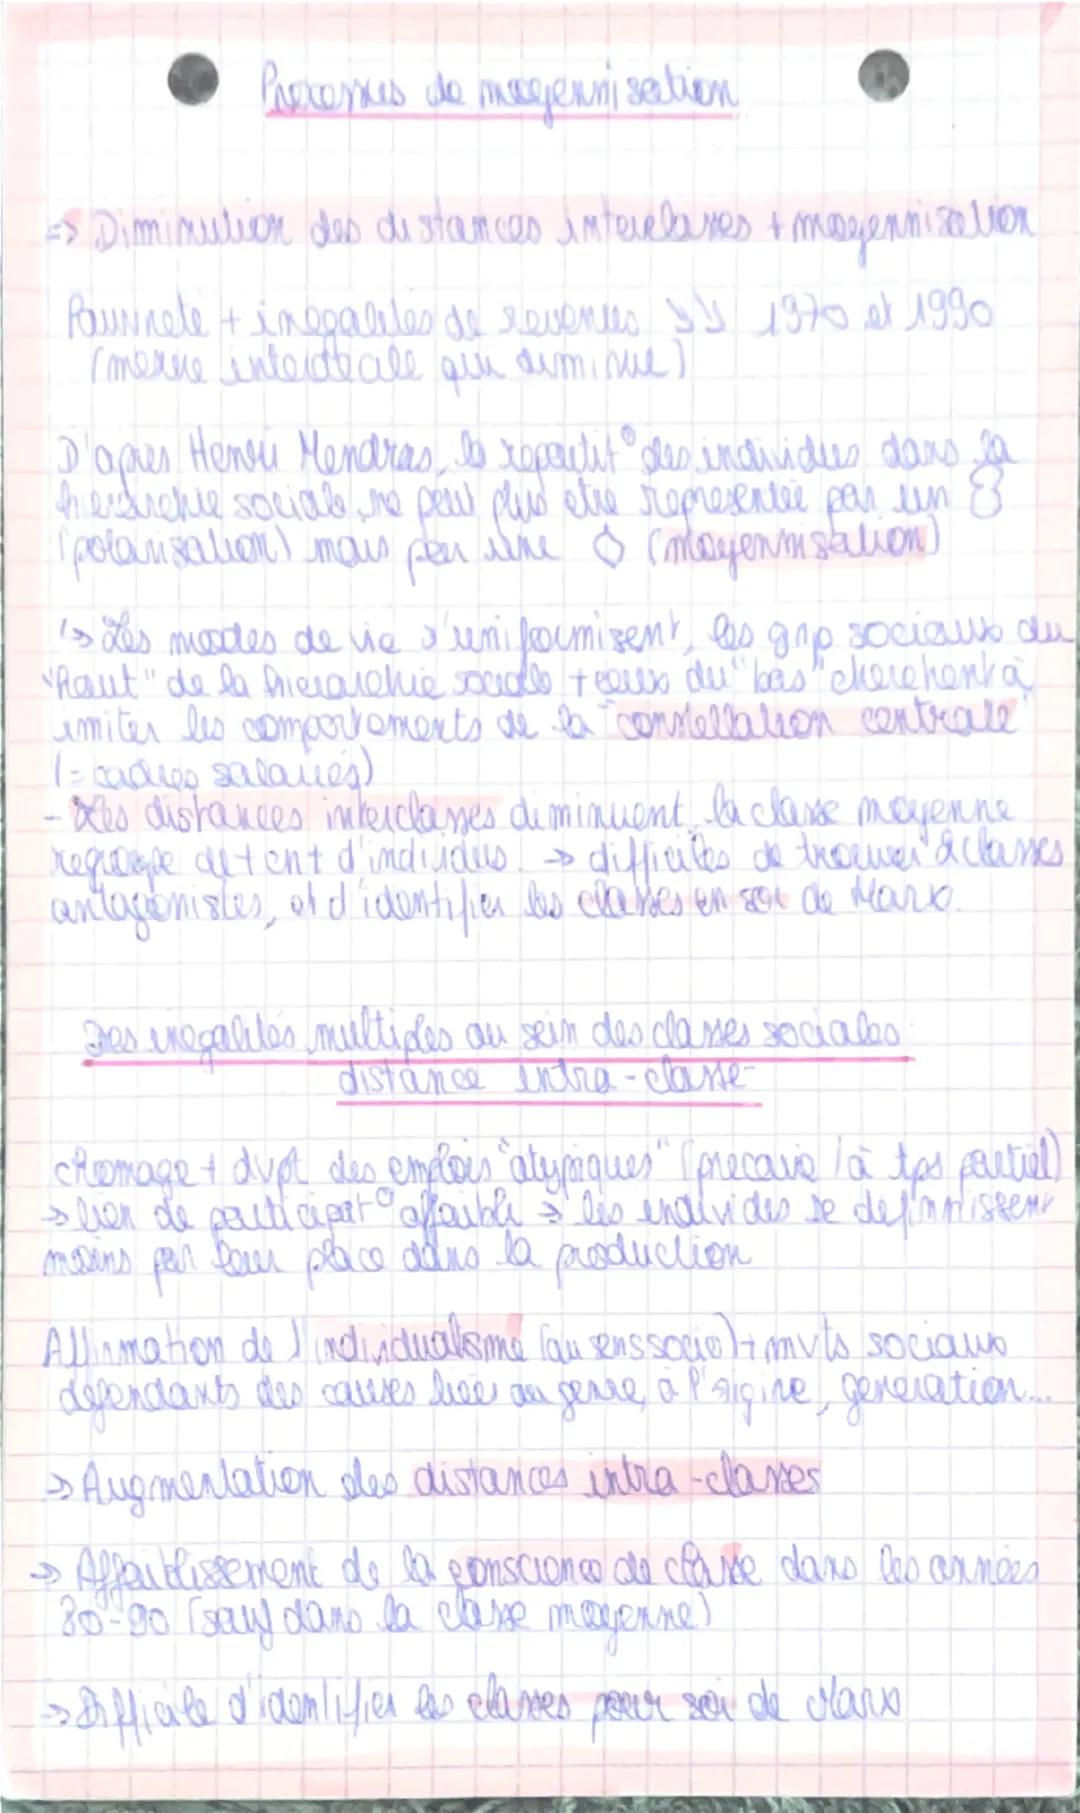 Processus de moyennisation
=> Diminution des distances interclasses + moyennisation
Pauvreté + inégalités de revenus ↘↘ 1970 et 1990
(mesure interdécile qui diminue)
D'après Henri Mendras, la repartit° des individus dans la
hierarchie sociale ne peut plus etre representée par un 8
(polarisation) mais par une (moyennisation)
↳ Les modes de vie s'uniformisent, les grp sociaux du
"haut" de la hierarchie sociale + ceux du "bas" cherchent à
imiter les comportements de la "constellation centrale"
(= cadres salariés)
- Les distances interclasses diminuent, la classe moyenne
regroupe d'individus. → difficiles de trouver 2 classes
antagonistes, et d'identifier les classes en soi de Marx.
Des inegalités multiples au sein des classes sociales :
distance intra-classe-
chômage + dvpt des emplois "atypiques" (précaire / à tps partiel)
→ lien de participat° affaibli → les individus se definnissent
moins par leur place dans la production
Affirmation de l'individualisme (au sens socio) + mvts sociaux
défendants des causes liées au genre, à l'origine, generation...
→ Augmentation des distances intra-classes
→ Affaiblissement de la conscience de classe dans les années
80-90 (sauf dans la classe moyenne)
→ Difficile d'identifier les classes pour soi de Marx